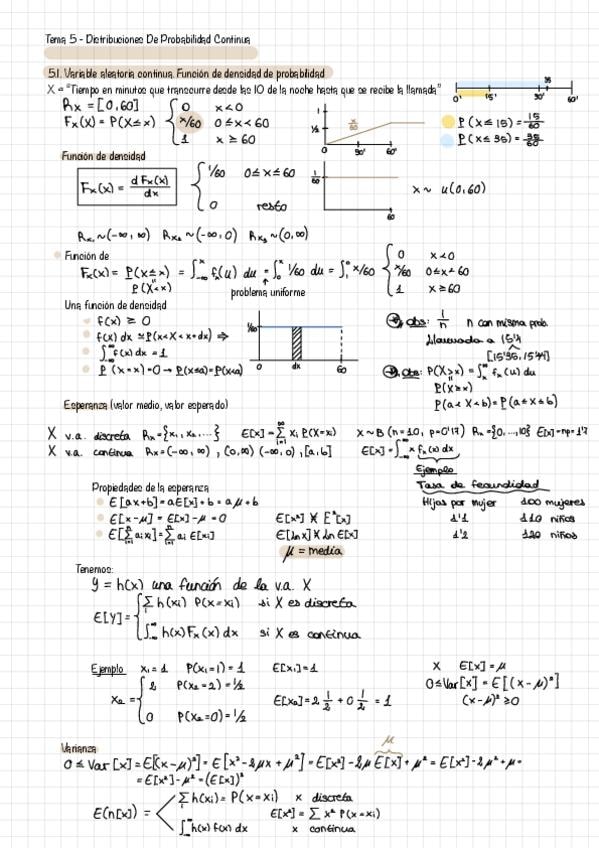 Tema 5 - Distribuciones De Probabilidad Continua
5.1. Variable aleatoria continua. Función de densidad de probabilidad
X = "Tiempo en minutos que transcurre desde las 10 de la noche hasta que se recibe la llamada"
0 15' 30' 35 60'
Rx = [0,60]
Fx(x) = P(X≤x) { 0 x<0
x/60 0≤x<60
1 x≥60
1 1/2 x/60 0 30' 60'
P(x≤15) = 15/60
P(x≤35) = 35/60
Función de densidad
Fx(x) = d Fx(x)/dx
{ 1/60 0≤x≤60
0 resto
1/60 60
x ~ u(0,60)
Rx₁ ~ (-∞, ∞) Rx₂ ~ (-∞, 0) Rx₃ ~ (0, ∞)
Función de
Fx(x) = P(X≤x) = ∫ fx(u) du = ∫ 1/60 du = ∫ x/60 { 0 x<0
x/60 0≤x<60
1 x≥60
P(X<x)
problema uniforme
Una función de densidad
f(x) ≥ 0
f(x) dx ≃ P(x<X<x+dx) ⇒
∫ f(x) dx = 1
P(x=x) = 0 → P(x≤a) = P(x<a)
1/60 0 dx 60
obs: 1/n n con misma prob.
llamada a 15'4
[15'35, 15'44]
obs: P(X>x) = ∫ fx(u) du
P(X≥x)
P(a<X<b) = P(a≤x≤b)
Esperanza (valor medio, valor esperado)
X v.a. discreta Rx = {x₁, x₂, ...} E[x] = Σ xi P(X=xi) X ~ B(n=10, p=0'17) Rx = {0,...,10} E[x] = np = 1'7
X v.a. continua Rx = (-∞, ∞), (0,∞) (-∞, 0), [a,b] E[x] = ∫ x fx(x) dx
Ejemplo
Tasa de fecundidad
Hijos por mujer 100 mujeres
1'1 110 niños
1'2 120 niños
Propiedades de la esperanza
E[ax+b] = aE[x] + b = aμ + b
E[x-μ] = E[x] - μ = 0 E[x²] ≠ E²[x]
E[Σ ai xi] = Σ ai E[xi] E[ln x] ≠ ln E[x]
μ = media
Tenemos:
y = h(x) una función de la v.a. X
E[Y] = { Σ h(xi) P(X=xi) si X es discreta
∫ h(x) Fx(x) dx si X es continua
Ejemplo x₁ = 1 P(x₁=1) = 1 E[x₁] = 1
x₂ = { 2 P(x₂=2) = 1/2
0 P(x₂=0) = 1/2
E[x₂] = 2 1/2 + 0 1/2 = 1
X E[x] = μ
0 ≤ Var[x] = E[(x-μ)²]
(x-μ)² ≥ 0
Varianza
μ
0 ≤ Var[x] = E[(x-μ)²] = E[x²-2μx+μ²] = E[x²]-2μ E[x]+μ² = E[x²]-2μ²+μ²
= E[x²]-μ² = (E[x])²
E(n[x]) = < Σ h(xi) = P(x=xi) x discreta
E[x²] = Σ x² P(x=xi)
∫ h(x) f(x) dx x continua